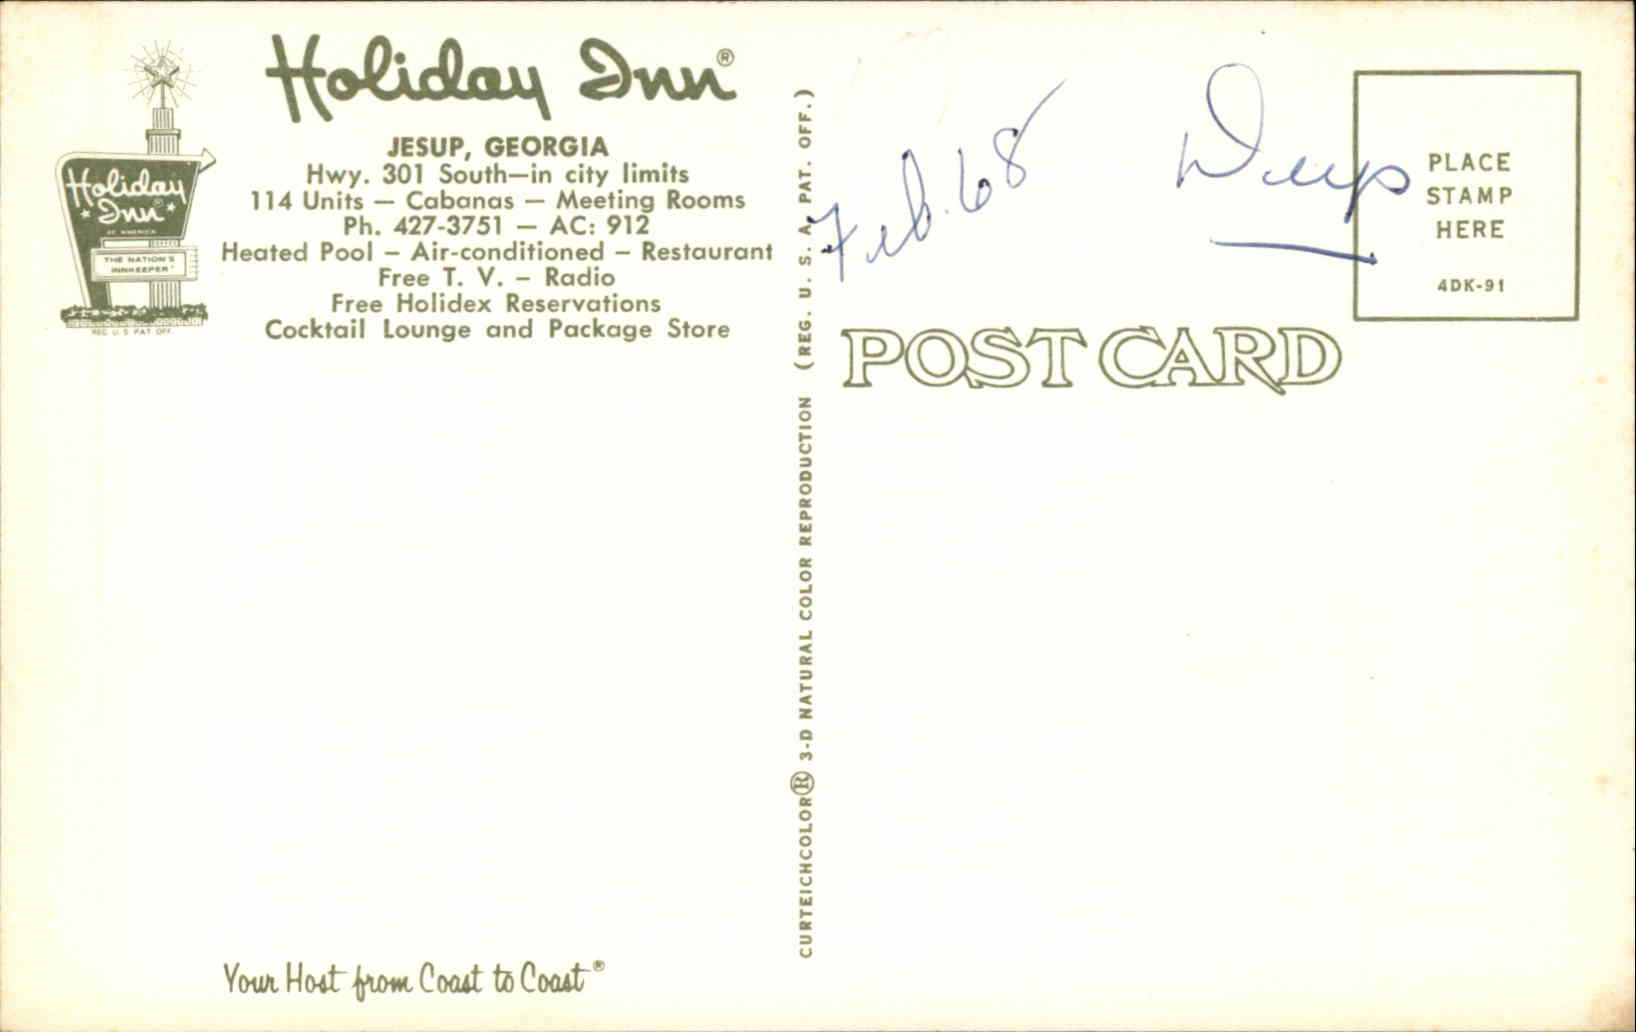 Holiday Inn®
JESUP, GEORGIA
Hwy. 301 South—in city limits
114 Units — Cabanas — Meeting Rooms
Ph. 427-3751 — AC: 912
Heated Pool — Air-conditioned — Restaurant
Free T. V. — Radio
Free Holidex Reservations
Cocktail Lounge and Package Store
Holiday
Inn®
OF AMERICA
THE NATION'S
INNKEEPER®
REG. U S PAT OFF.
Your Host from Coast to Coast®
CURTEICHCOLOR® 3-D NATURAL COLOR REPRODUCTION (REG. U. S. A. PAT. OFF.)
Feb. 68
POST CARD
PLACE
STAMP
HERE
4DK-91